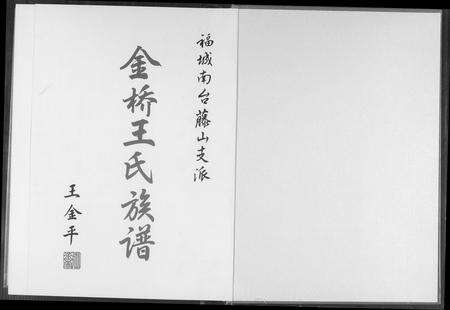 福城南台藤山支派
金桥王氏族谱
王金平